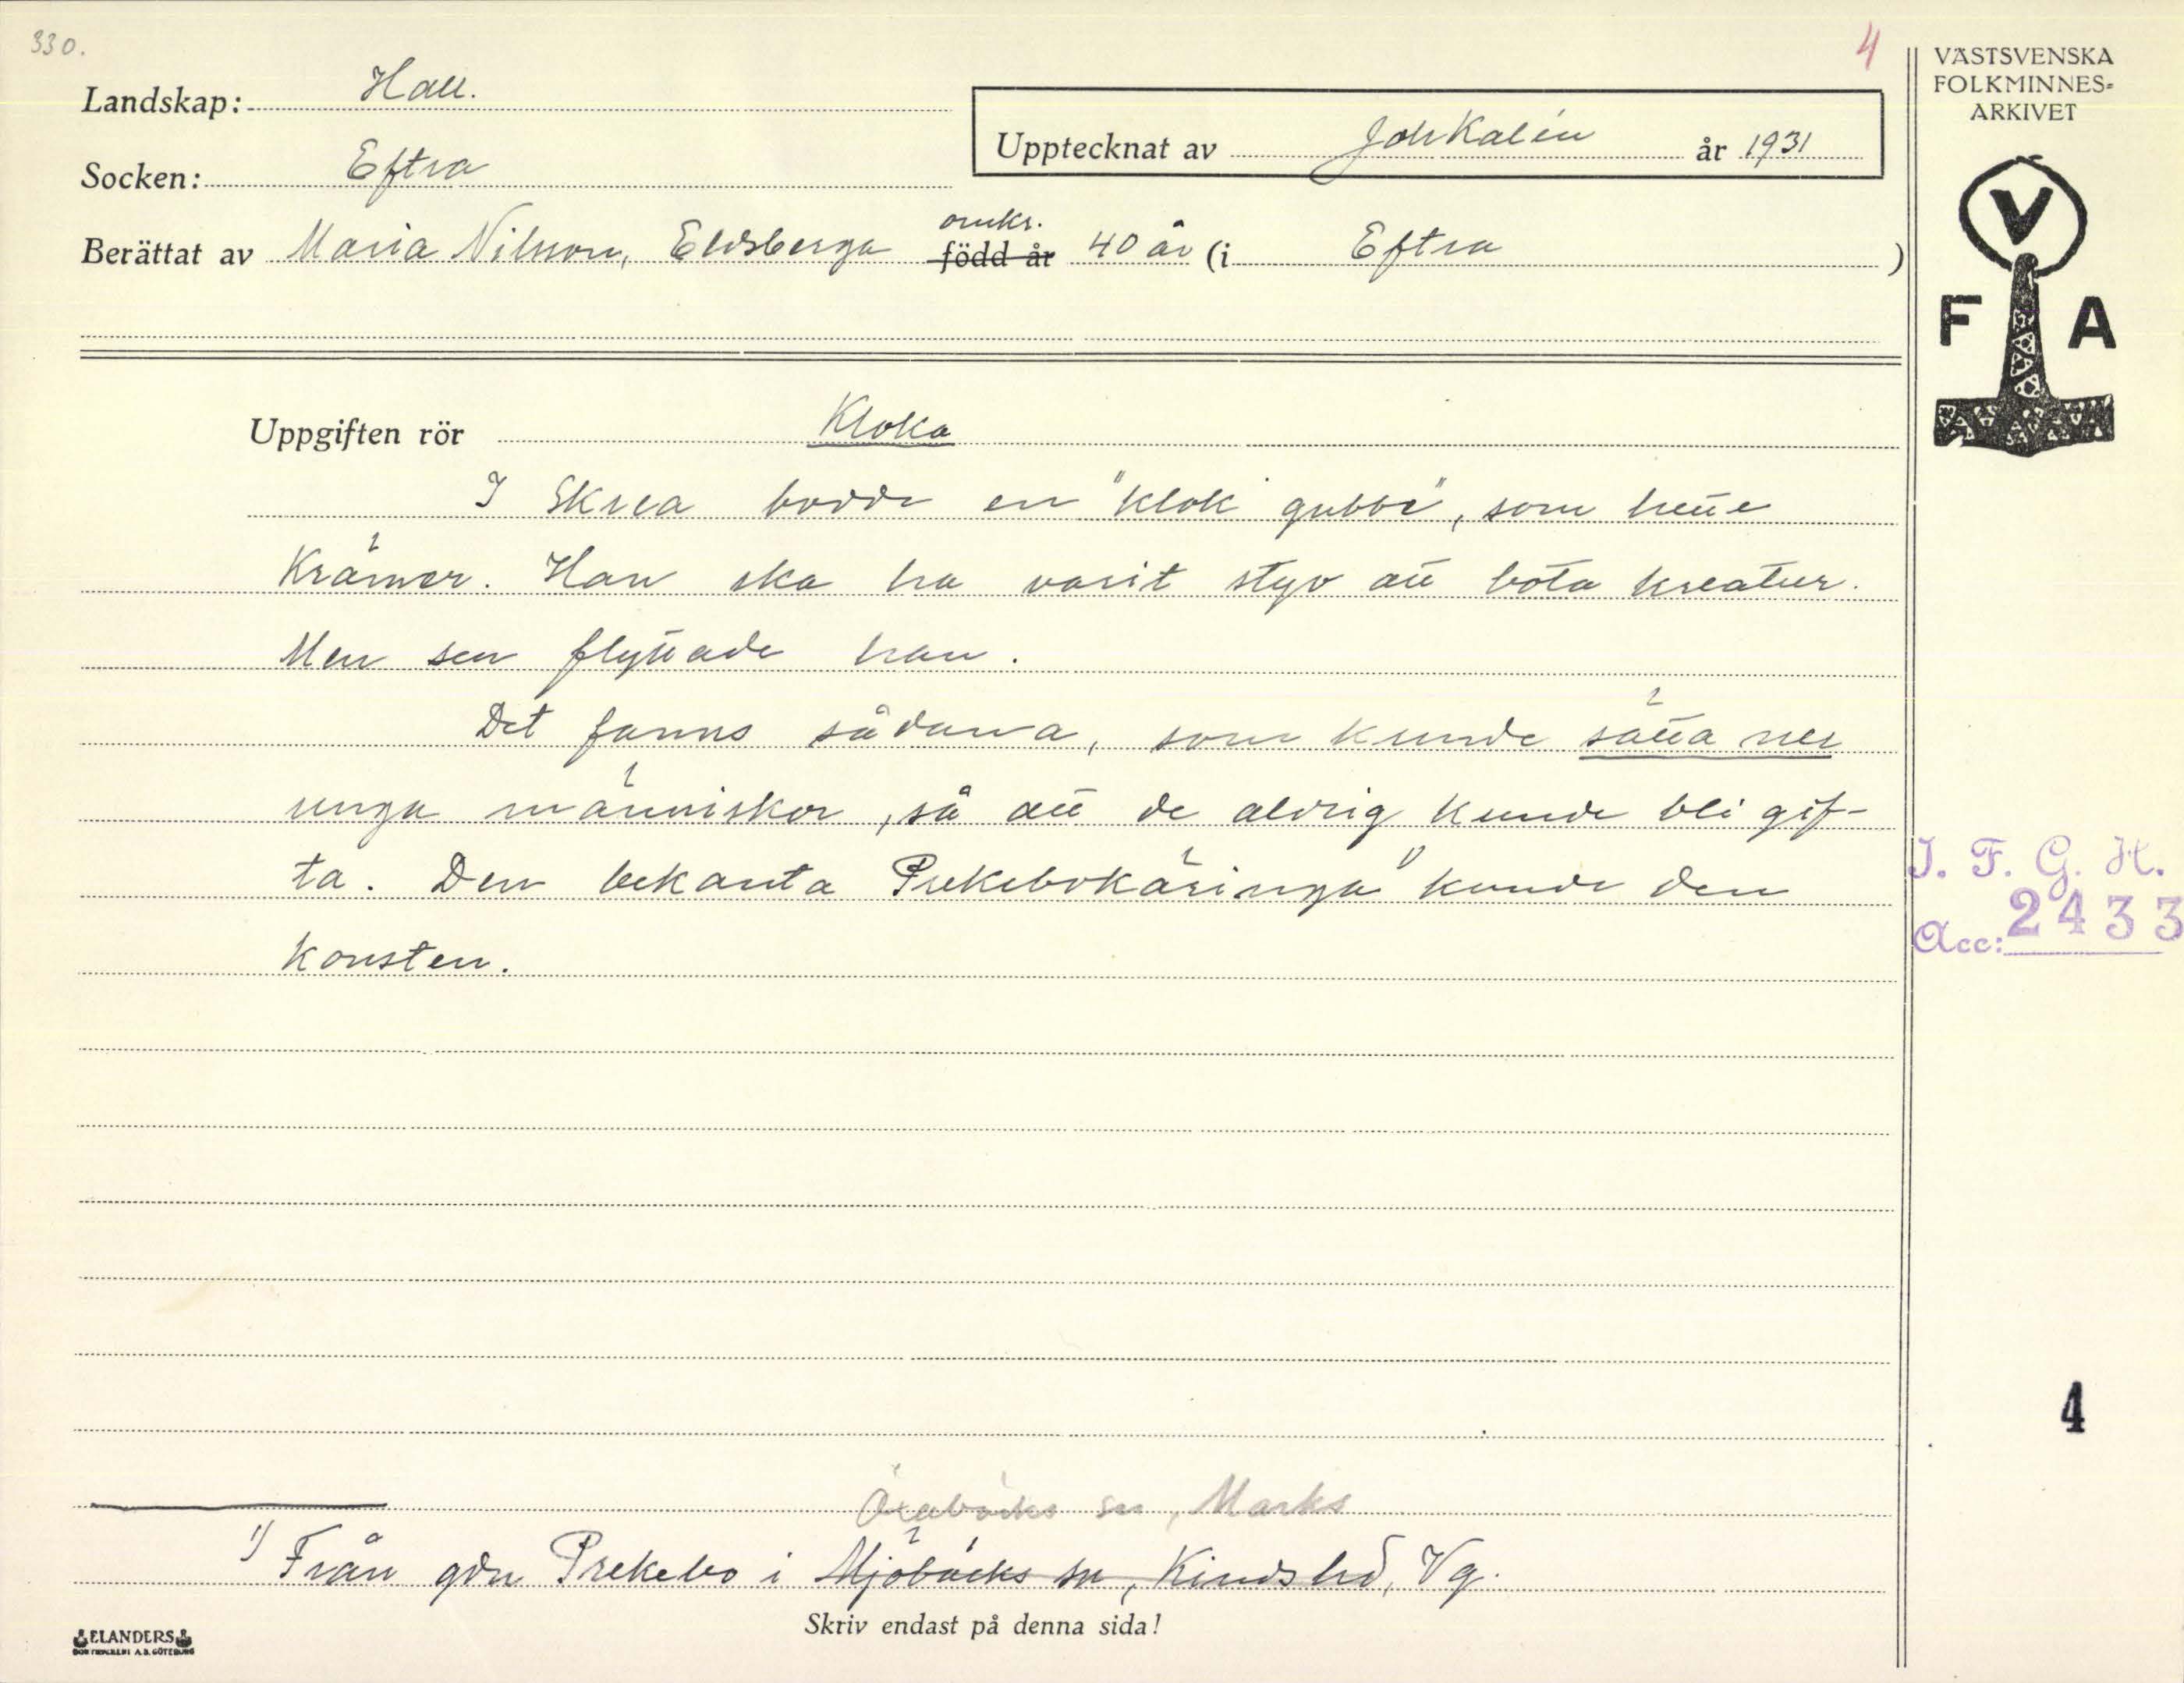 330.
4
Landskap: Hall.
Socken: Eftra
Upptecknat av Joh Kalén år 1931
Berättat av Maria Nilsson, Eldsberga omkr. född år 40 år (i Eftra)
VÄSTSVENSKA
FOLKMINNES-
ARKIVET
V
F A
Uppgiften rör Kloka
I Skrea bodde en "klok gubbe", som hette
Krämer. Han ska ha varit styv att bota kreatur.
Men sen flyttade han.
Det fanns sådana, som kunde sätta ner
unga människor, så att de aldrig kunde bli gif-
ta. Den bekanta Prekebokäringa 1) kunde den
konsten.
I. F. G. H.
Acc: 2433
4
Öxabäcks sn, Marks
1) Från gdn Prekebo i Mjöbäcks sn, Kinds hd, Vg.
Skriv endast på denna sida!
ELANDERS
BOKTRYCKERI A.B. GÖTEBORG